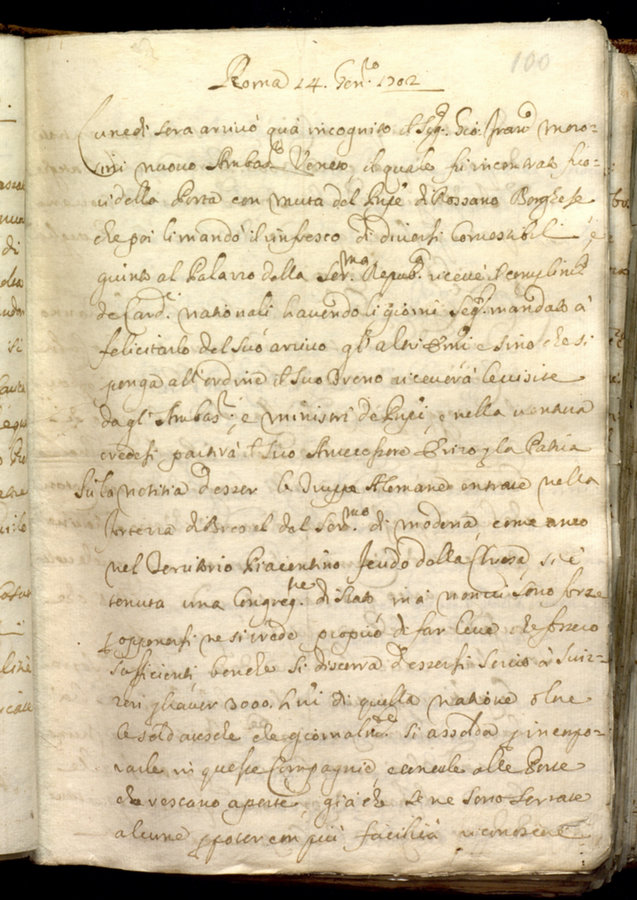 100
Roma 14. Gen.ro 1702
Lunedì sera arrivò quà incognito il Sig.r Gio: Fran.co Moro-
sini nuovo Ambas.r Veneto, il quale fù incontrato fuo-
ri della Porta con muta del Prñpe di Rossano Borghese
che poi li mandò il rinfresco di diversi Comestibili, e
giunto al Palazzo della Ser.ma Repub.ca ricevè i complim.ti
de Card.li nationali havendo li giorni seg.ti mandato à
felicitarlo del suo arrivo gl'altri Em̃i e sino che si
ponga all'ordine il suo Treno riceverà le visite
dagl'Ambas.ri, e ministri de Prñpi, e nella ventura
credesi partirà il suo Antecessore Erizo p la Patria
Su la notitia d'esser le Truppe Alemane entrate nella
fortezza di Bresel del Ser.mo di Modena, come anco
nel Territorio Piacentino feudo della Chiesa, si è
tenuta una Congreg.ne di Stato mà non vi sono forze
p opporsi ne si vede proprio di far leve che forzeo
sufficienti benche si discorra d'essersi scritto à Sviz-
zeri p haver 3000. h̃ni di quella natione oltre
le soldatesche che giornalm.te si assolda p incorpo-
rarle in queste Compagnie, e anche alle Porte
che restano aperte, già che se ne sono serrate
alcune p poter con più facilità riconoscere